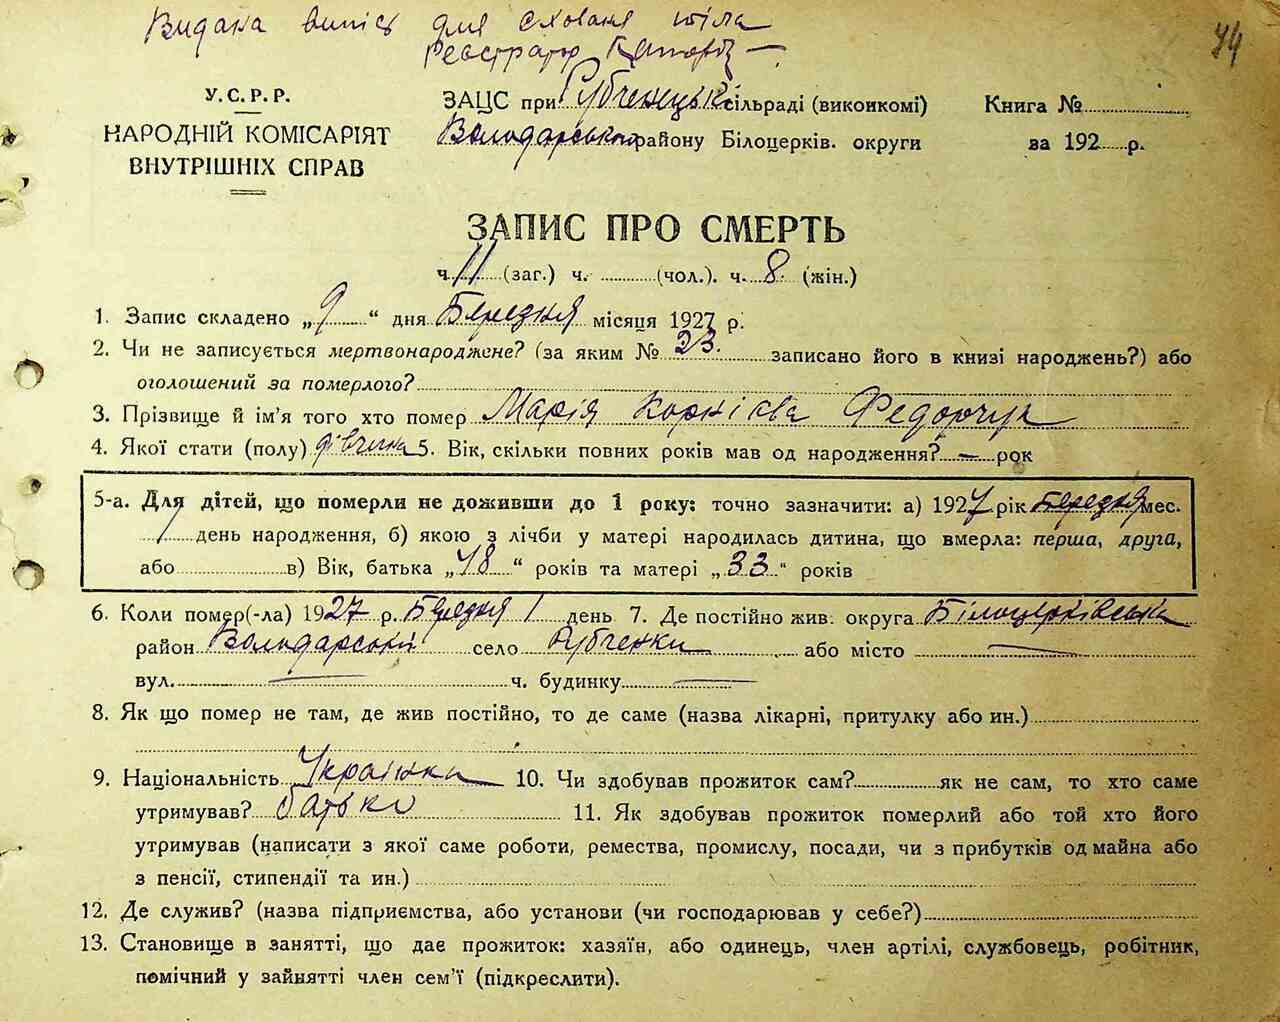 Видана випись для сховання тіла
Реєстратор
44
У.С.Р.Р.
НАРОДНІЙ КОМІСАРІЯТ
ВНУТРІШНІХ СПРАВ
ЗАЦС при Рубченецькій сільраді (виконкомі)
Володарського району Білоцерків. округи
Книга №
за 192 р.
ЗАПИС ПРО СМЕРТЬ
ч. 11 (заг.) ч. (чол.). ч. 8 (жін.)
1. Запис складено „9“ дня Березня місяця 1927 р.
2. Чи не записується мертвонароджене? (за яким № 23. записано його в книзі народжень?) або
оголошений за померлого?
3. Прізвище й ім’я того хто помер Марія Корнієва Федорчук
4. Якої стати (полу) дівчина 5. Вік, скільки повних років мав од народження? — рок
5-а. Для дітей, що померли не доживши до 1 року: точно зазначити: а) 1927 рік Березня мес.
1 день народження, б) якою з лічби у матері народилась дитина, що вмерла: перша, друга,
або в) Вік, батька „48“ років та матері „33“ років
6. Коли помер(-ла) 1927 р. Березня 1 день 7. Де постійно жив: округа Білоцерківська
район Володарський село Рубченки або місто —
вул. — ч. будинку —
8. Як що помер не там, де жив постійно, то де саме (назва лікарні, притулку або ин.)
9. Національність Українка 10. Чи здобував прожиток сам? як не сам, то хто саме
утримував? батько 11. Як здобував прожиток померлий або той хто його
утримував (написати з якої саме роботи, ремества, промислу, посади, чи з прибутків од майна або
з пенсії, стипендії та ин.)
12. Де служив? (назва підприємства, або установи (чи господарював у себе?)
13. Становище в занятті, що дає прожиток: хазяїн, або одинець, член артілі, службовець, робітник,
помічний у зайнятті член сем’ї (підкреслити).